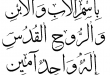 بِاسْمِ الْآبِ وَالْاِبْنِ
وَالرُّوحِ الْقُدُسِ
إِلَهٌ وَاحِدٌ آمِيْن